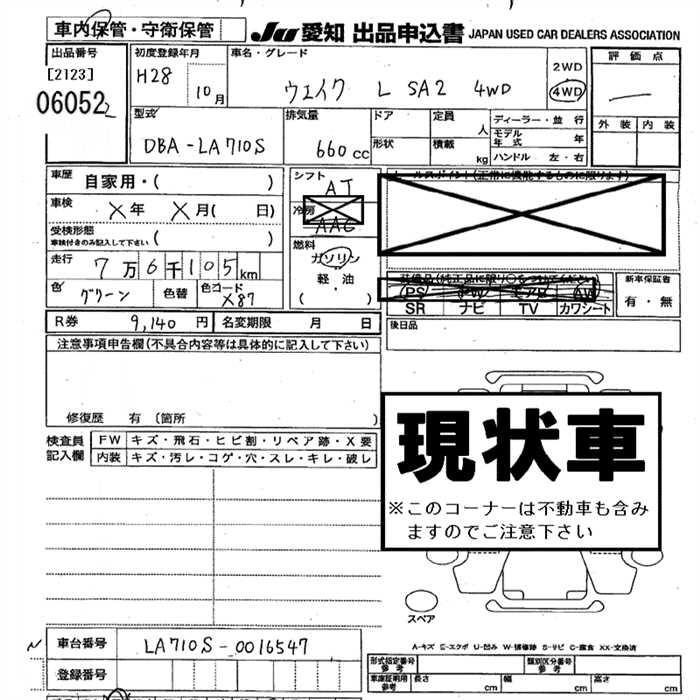 車内保管・守衛保管
JU 愛知 出品申込書 JAPAN USED CAR DEALERS ASSOCIATION
出品番号
[2123]
06052
初度登録年月
H28 10月
車名・グレード
ウエイク L SA2 4WD
2WD
4WD
評価点
外装 内装
型式
DBA-LA710S
排気量
660cc
ドア
形状
定員 人
積載 kg
ディーラー・並行
モデル年式 年
ハンドル 左・右
車歴 自家用・( )
車検 X年 X月( 日)
受検形態
車検付きのみ記入して下さい ( )
走行 7万6千105km
色 グリーン
色替
色コード X87
シフト
AT
冷房
AAC
燃料
ガソリン
軽・油
( )
セールスポイント(正常に機能するものに限ります)
装備品(純正品に限り○をつけてください)
PS PW エアB AW
SR ナビ TV カワシート
新車保証書
有・無
R券 9,140円 名変期限 月 日
後日品
注意事項申告欄(不具合内容等は具体的に記入して下さい)
修復歴 有 〔箇所 )
検査員記入欄
FW キズ・飛石・ヒビ割・リペア跡・X要
内装 キズ・汚レ・コゲ・穴・スレ・キレ・破レ
現状車
※このコーナーは不動車も含み
ますのでご注意下さい
スペア
A-キズ E-エクボ U-凹み W-補修跡 S-サビ C-腐食 XX-交換済
車台番号 LA710S-0016547
登録番号
形式指定番号 参考
類別区分番号 参考
車庫証明用 参考 長さ cm 幅 cm 高さ cm